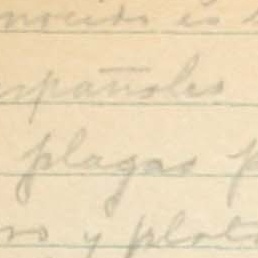 nocido es
españoles
plagas p
ro y plat